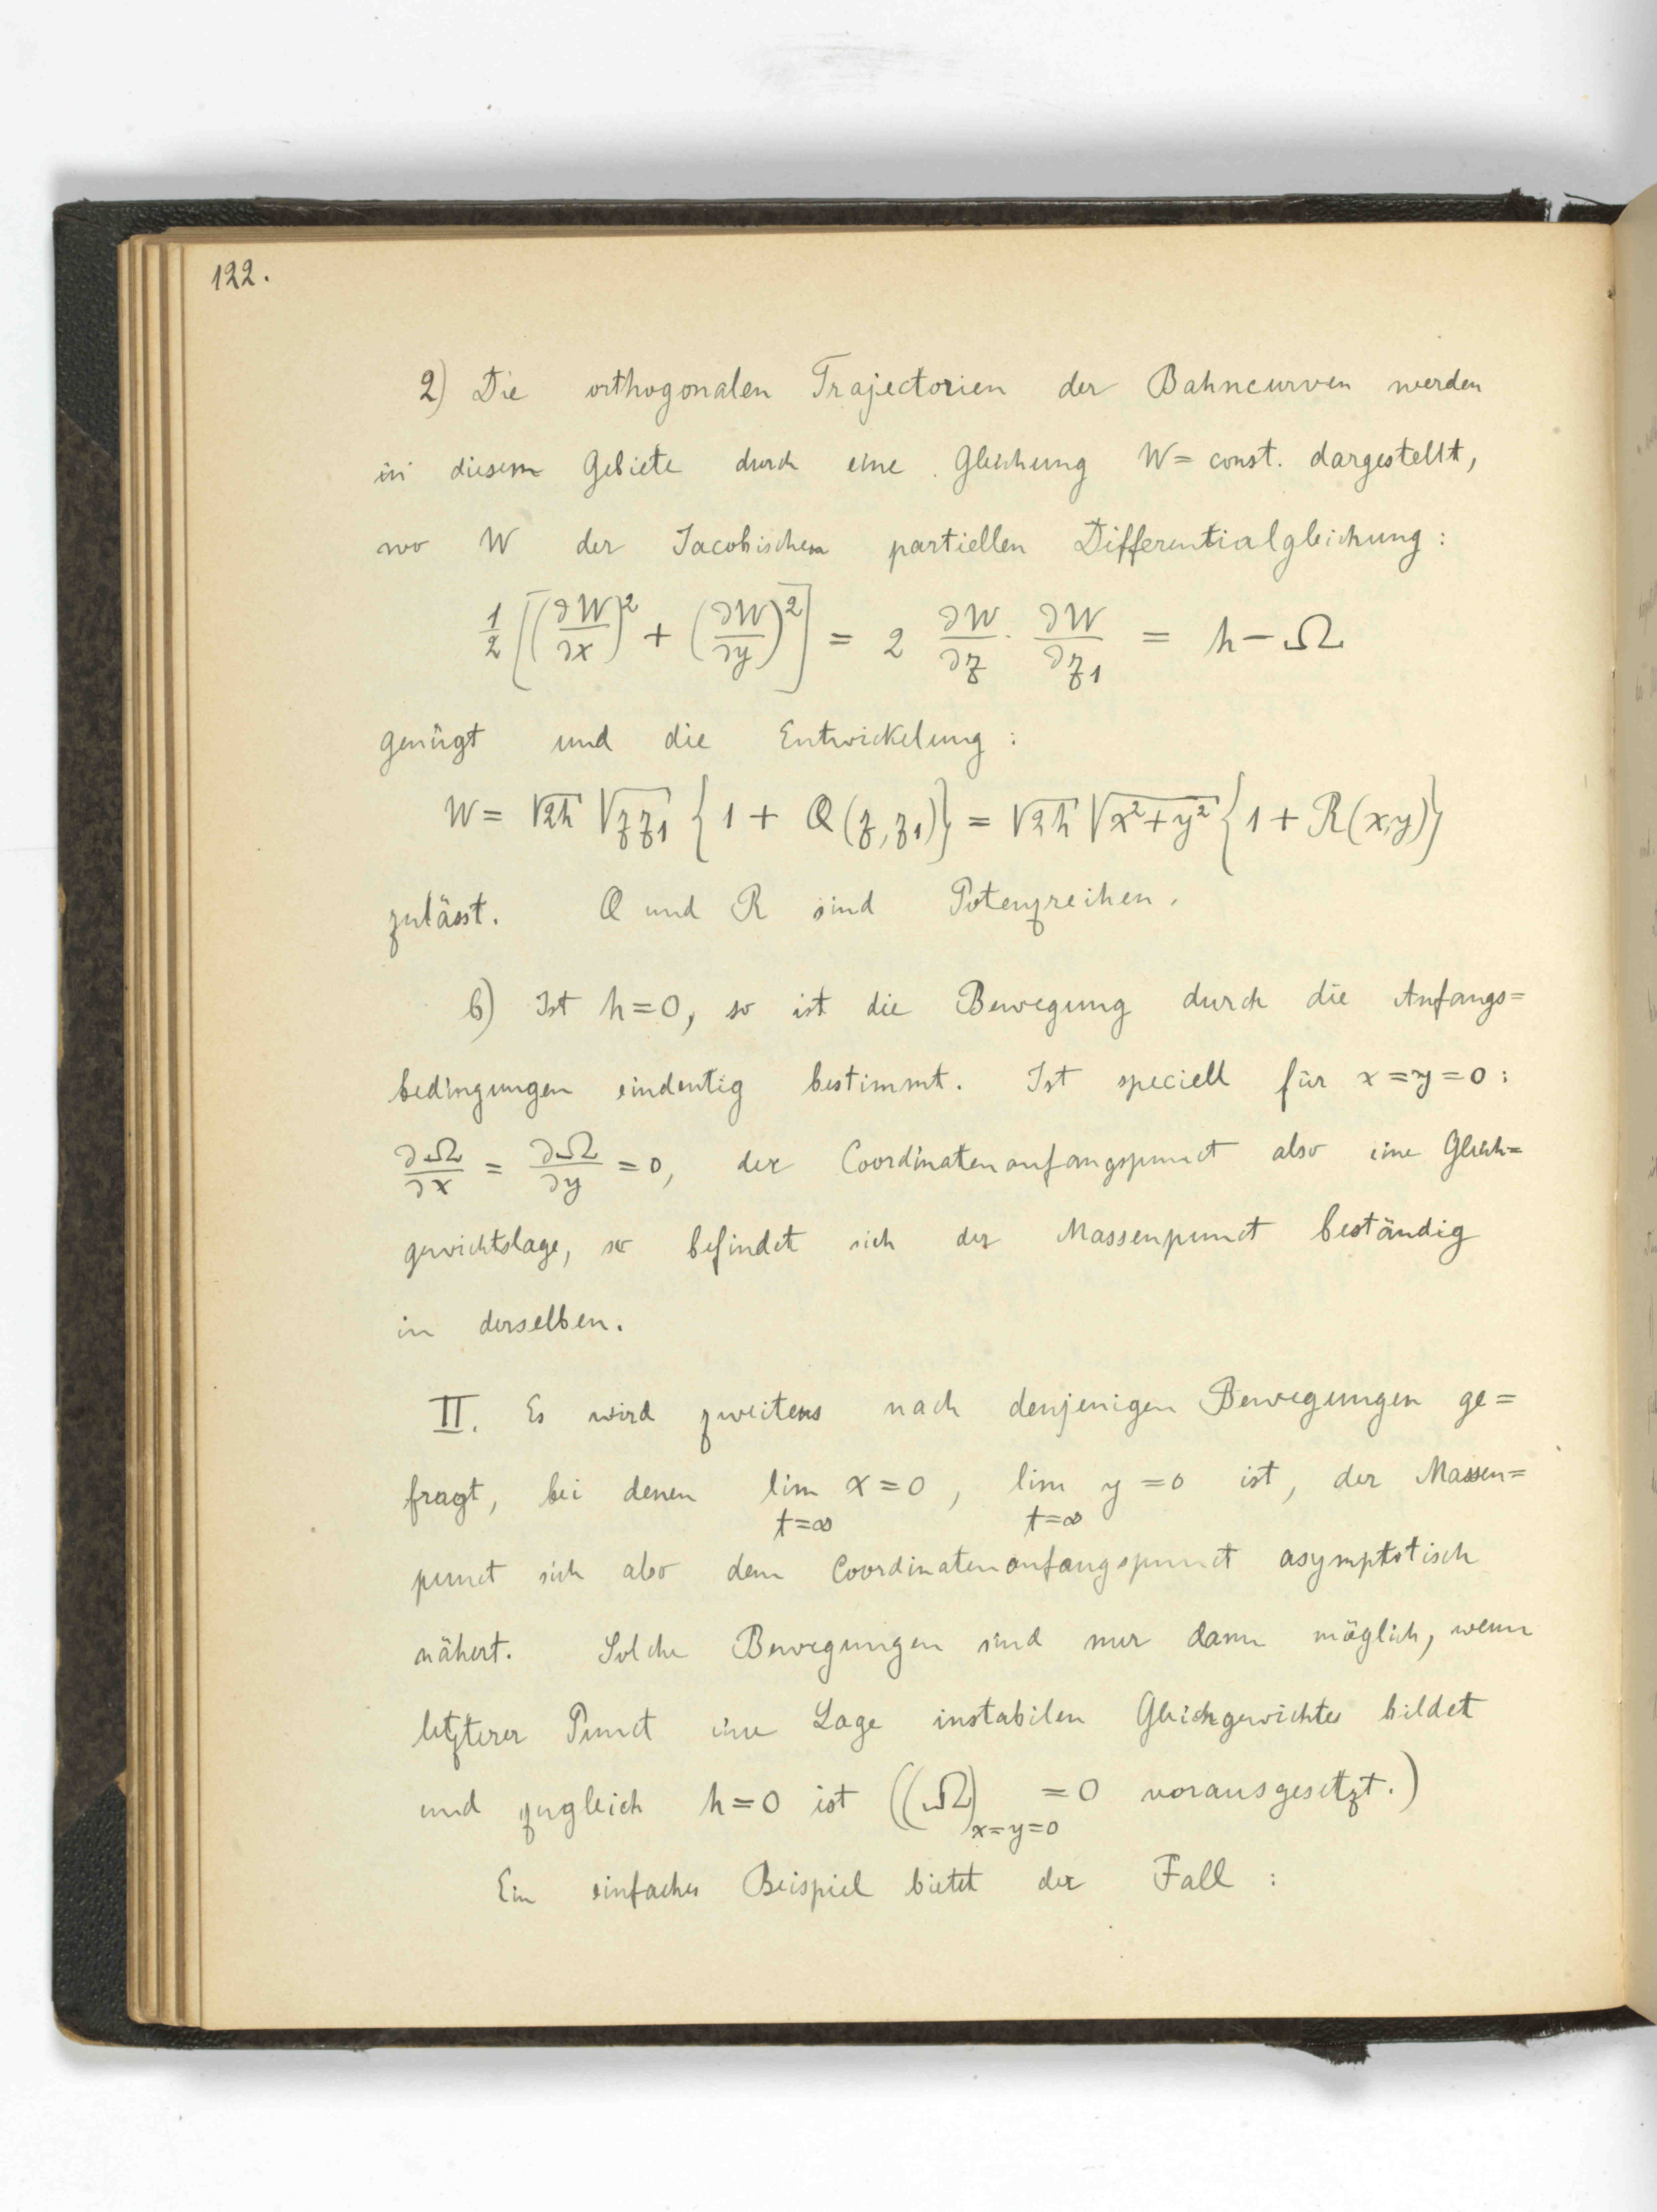 122.
2) Die orthogonalen Trajectorien der Bahncurven werden
in diesem Gebiete durch eine Gleichung W = const. dargestellt,
wo W der Jacobischen partiellen Differentialgleichung:
1/2 [(∂W/∂x)² + (∂W/∂y)²] = 2 ∂W/∂z · ∂W/∂z₁ = h − Ω
genügt und die Entwickelung:
W = √2h √zz₁ {1 + Q(z, z₁)} = √2h √x²+y² {1 + R(x,y)}
zulässt. Q und R sind Potenzreihen.
b) Ist h = 0, so ist die Bewegung durch die Anfangs=
bedingungen eindeutig bestimmt. Ist speciell für x = y = 0:
∂Ω/∂x = ∂Ω/∂y = 0, der Coordinatenanfangspunct also eine Gleich=
gewichtslage, so befindet sich der Massenpunct beständig
in derselben.
II. Es wird zweitens nach denjenigen Bewegungen ge=
fragt, bei denen lim x = 0, lim y = 0 ist, der Massen=
t=∞ t=∞
punct sich also dem Coordinatenanfangspunct asymptotisch
nähert. Solche Bewegungen sind nur dann möglich, wenn
letzterer Punct eine Lage instabilen Gleichgewichtes bildet
und zugleich h = 0 ist ((Ω)x=y=0 = 0 vorausgesetzt.)
Ein einfaches Beispiel bietet der Fall :